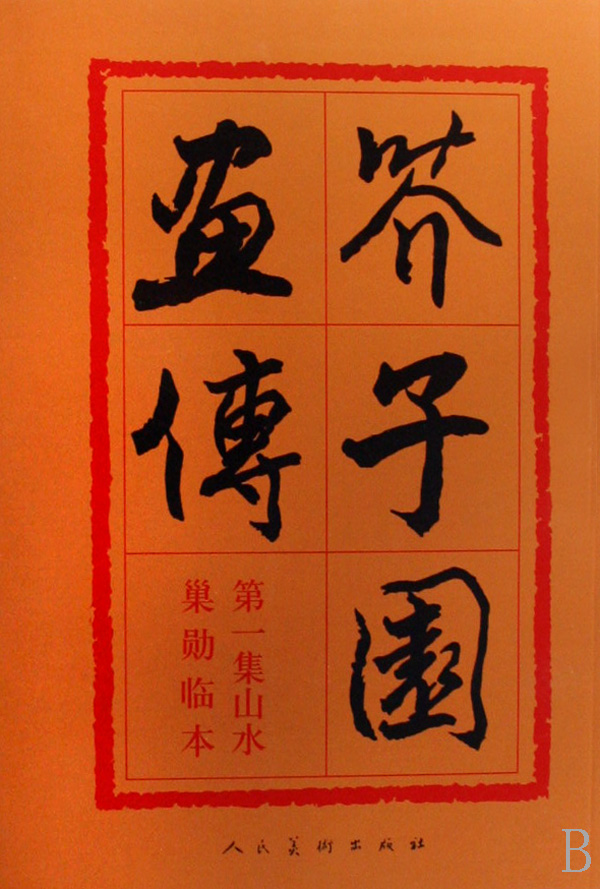 芥子園
畫傳
第一集山水
巢勋临本
人民美术出版社
B